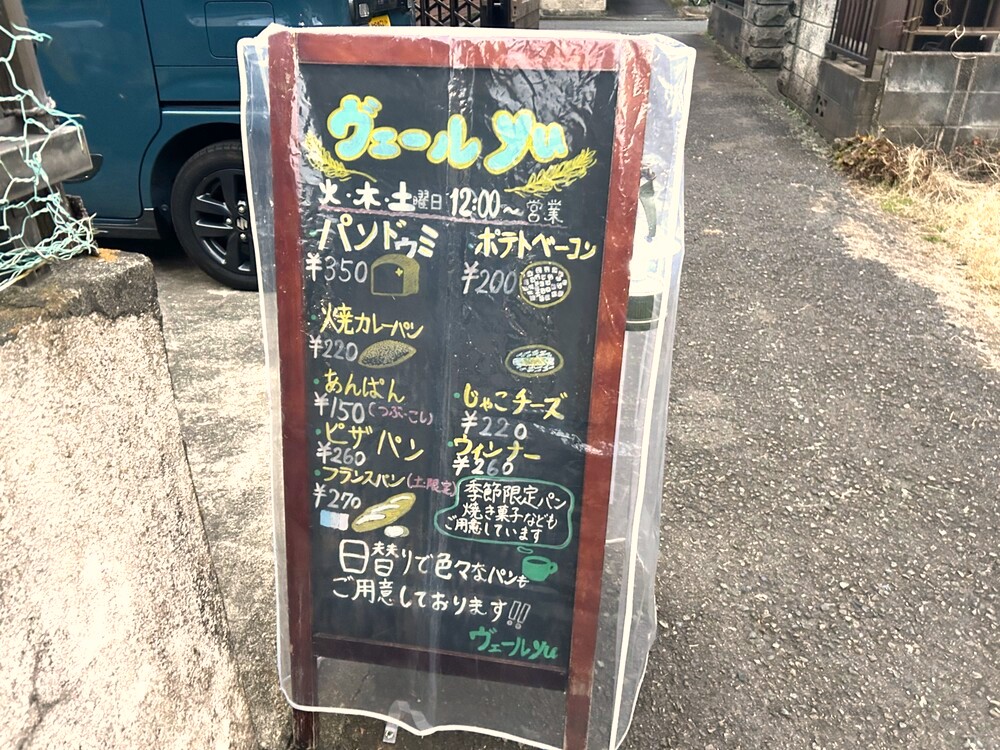 ヴェール yu
火・木・土曜日 12:00〜営業
・パンドゥミ
¥350
・ポテトベーコン
¥200
・焼カレーパン
¥220
・あんぱん
¥150(つぶ・こし)
・じゃこチーズ
¥220
・ピザパン
¥260
・ウィンナー
¥260
・フランスパン(土・限定)
¥270
季節限定パン
焼き菓子なども
ご用意しています
日替りで色々なパンも
ご用意しております!!
ヴェール yu